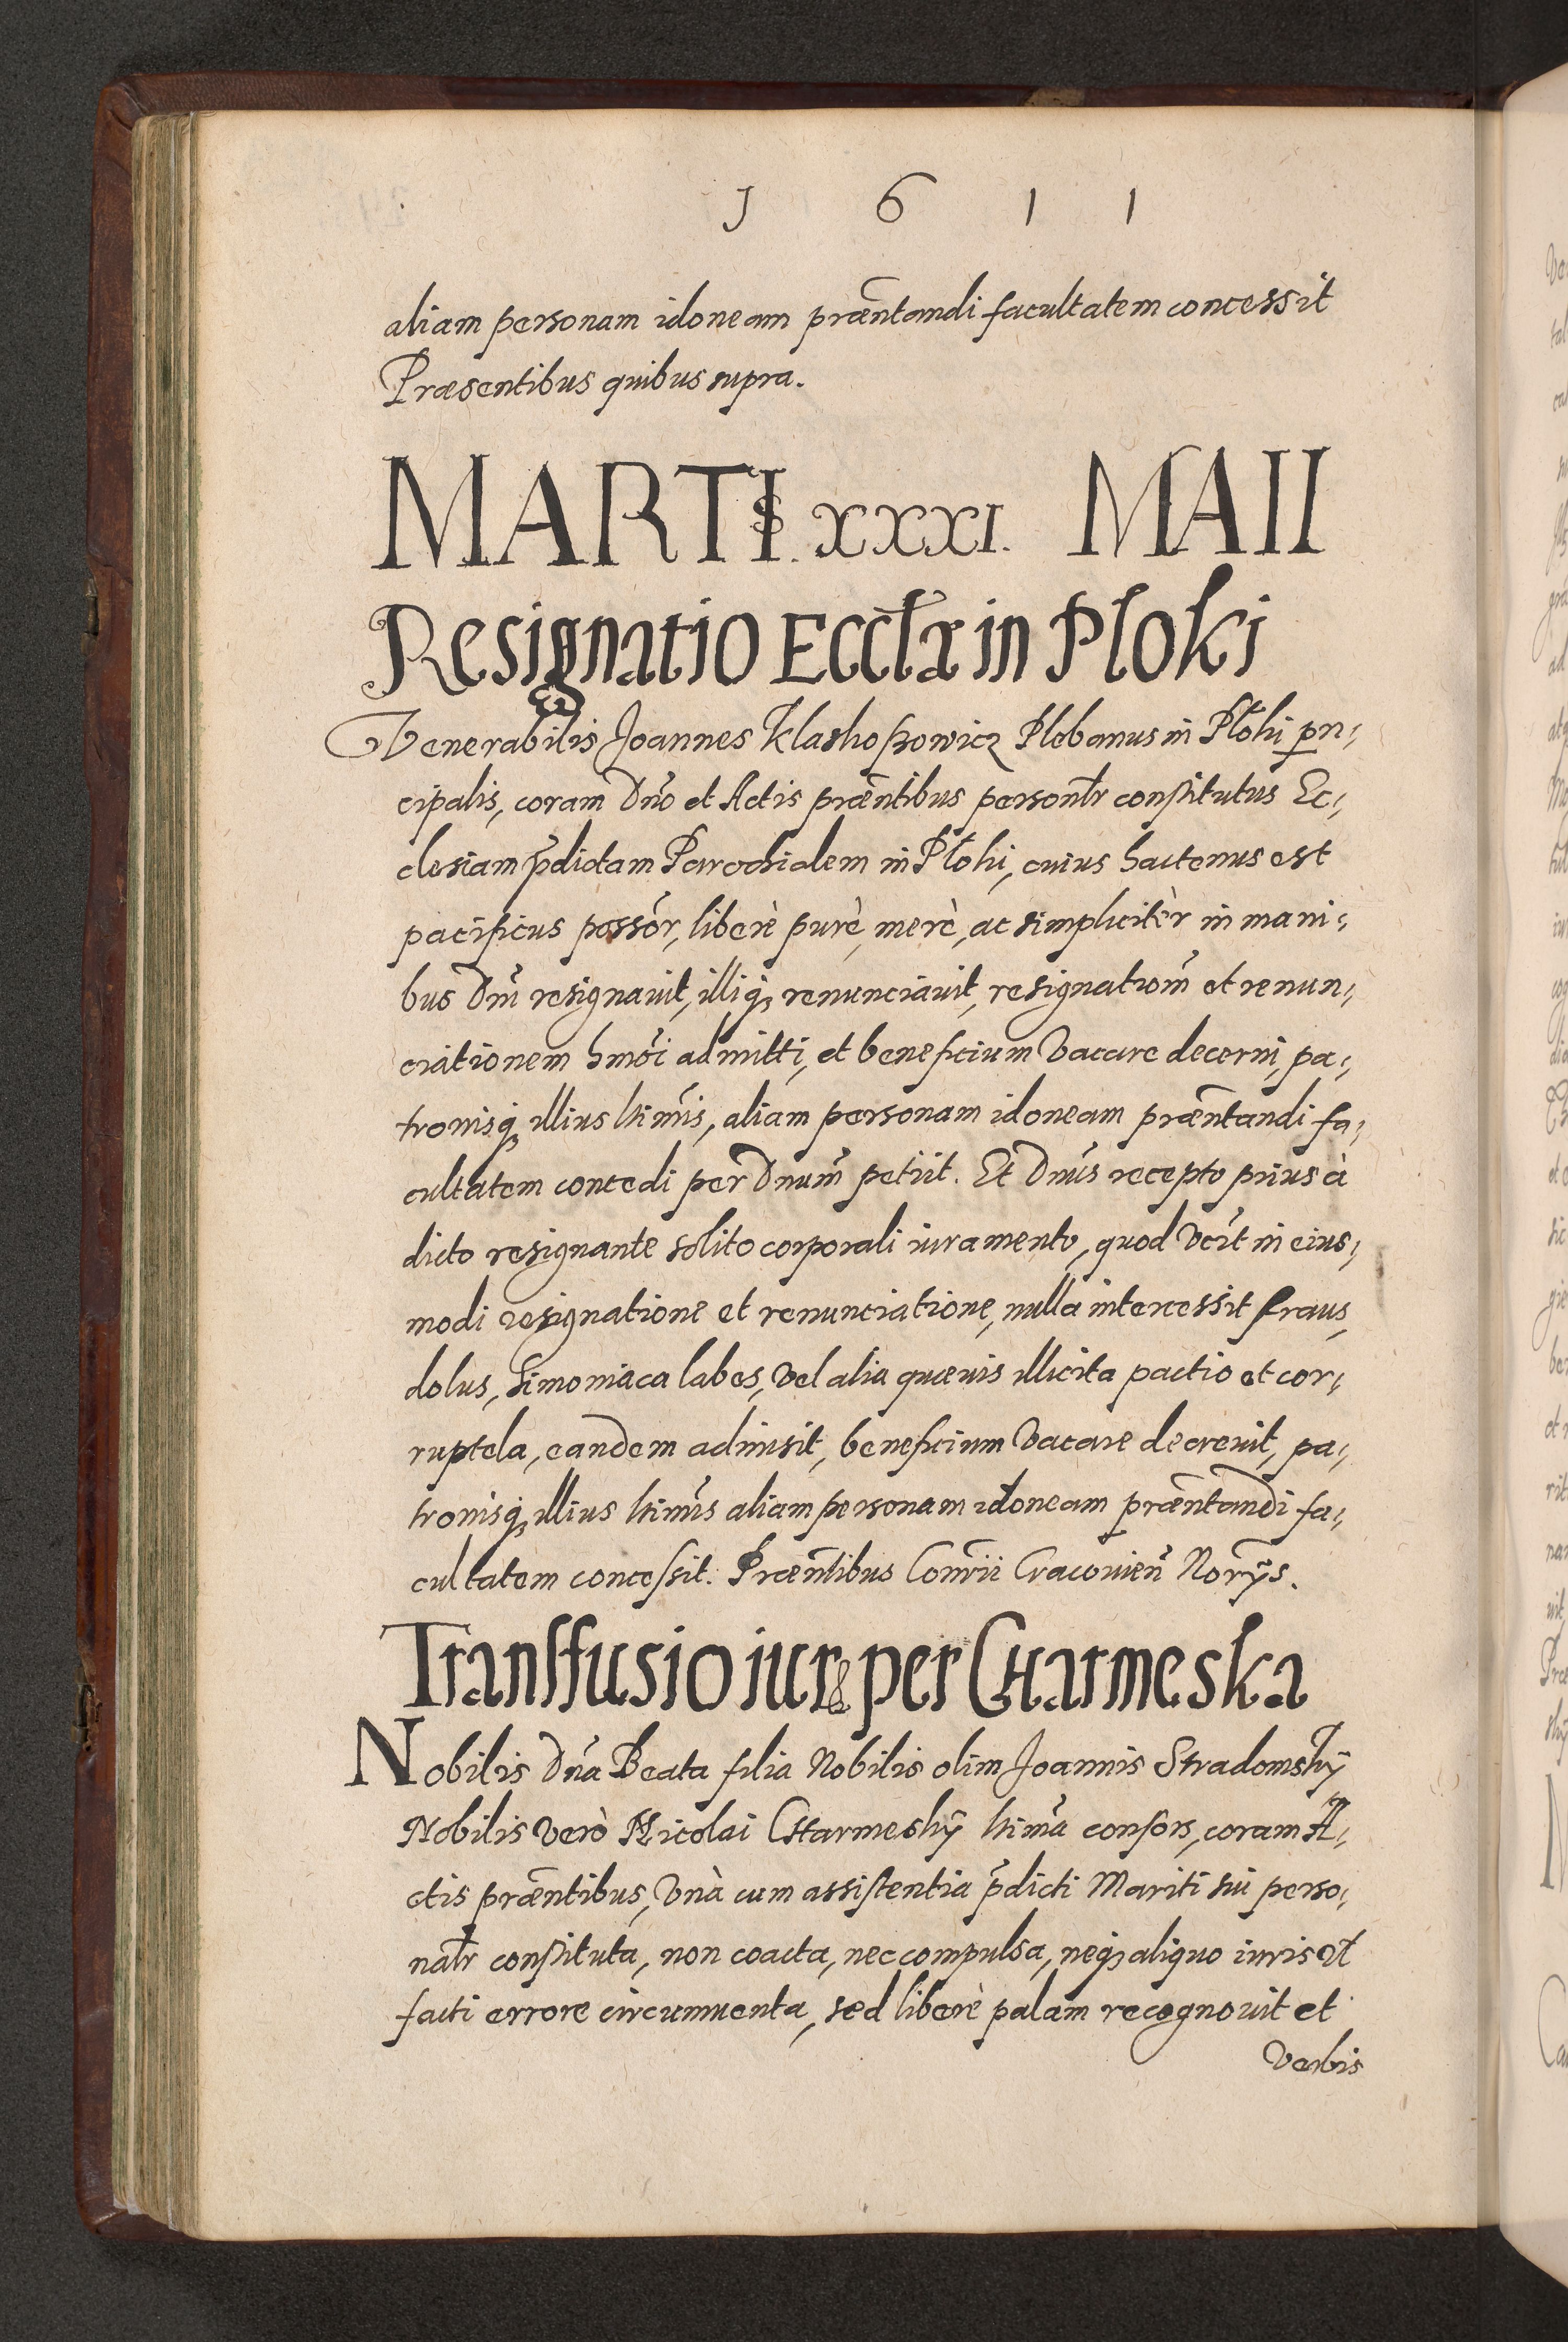 1 6 1 1
aliam personam idoneam præn̄tandi facultatem concessit
Præsentibus quibus supra.
MARTIS. XXXI. MAII
Resignatio Eccłæ in Ploki
Venerabilis Joannes Klaskoſzowicz Plebanus in Płoki prin¬
cipalis, coram Dn̄o et Actis præn̄tibus personłr conſtitutus Ec¬
clesiam p̄dictam Parochialem in Płoki, cuius hactenus est
pacificus possor̄, liberè purè, merè, ac simplicitèr in mani¬
bus Dn̄i resignauit, illiq₃ renunciauit, resignationē et renun¬
ciationem hmoī admitti, et beneficium Vacare decerni, pa¬
tronisq₃ illius ltimīs, aliam personam idoneam præn̄tandi fa¬
cultatem concedi per Dnum̄ petiit. Et Dnūs recepto prius à
dicto resignante solito corporali iuramento, quod Vīdt in eius¬
modi resignatione et renunciatione, nulla intercessit fraus,
dolus, Simoniaca labes, Vel alia quæuis illicita pactio et cor¬
ruptela, eandem admisit, beneficium Vacare decreuit, pa¬
tronisq₃ illius ltimīs aliam personam idoneam præn̄tandi fa¬
cultatem conceſsit. Præn̄tibus Conrīi Cracouien̄ Norȳs.
Tranſfusio iur₎ per Charmeska
Nobilis Dn̄a Beata filia Nobilis olim Joannis Stradomskÿ
Nobilis Verò Nicolai Charmeskÿ ltimā conſors, coram A¬
ctis præn̄tibus, Vnà cum assiſtentia p̄dicti Mariti sui perso¬
nałr conſtituta, non coacta, nec compulsa, neq₃ aliquo iuris vł
facti errore circumuenta, sed liberè palam recognouit et
Verbis